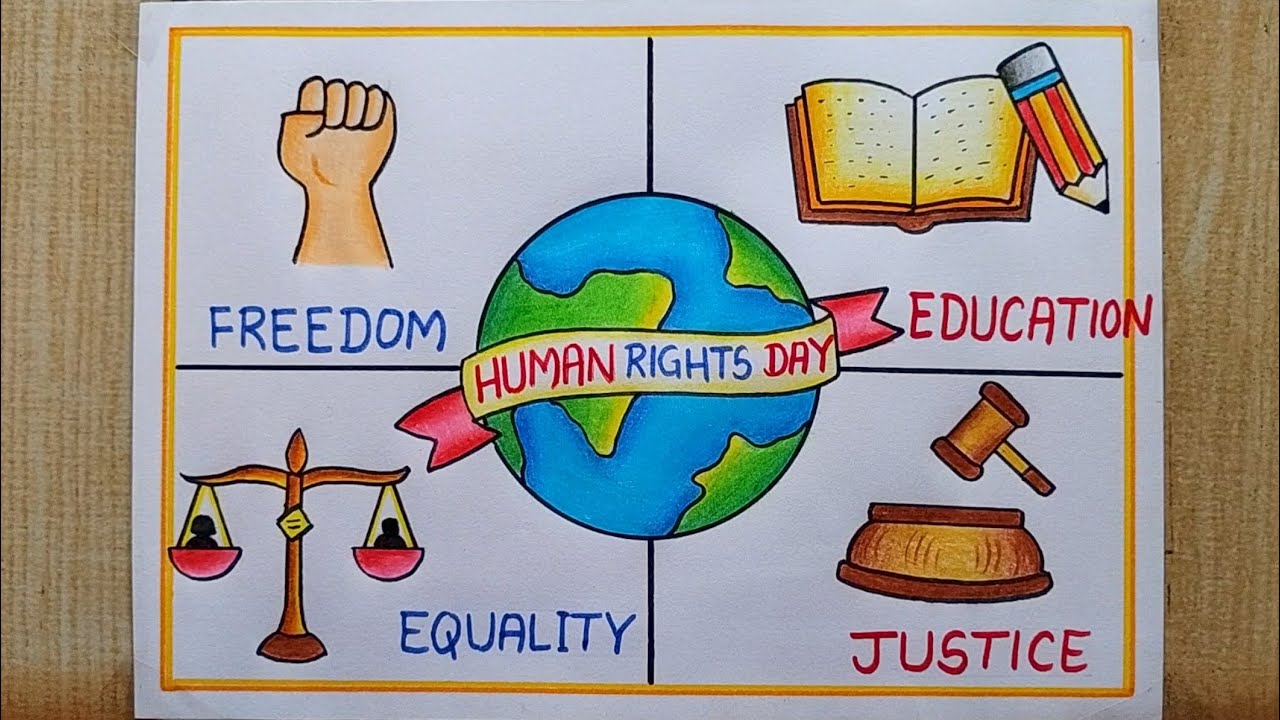 FREEDOM
EDUCATION
HUMAN RIGHTS DAY
EQUALITY
JUSTICE